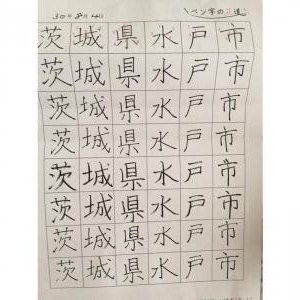 ペン字の正道
茨城県水戸市
茨城県水戸市
茨城県水戸市
茨城県水戸市
茨城県水戸市
茨城県水戸市
茨城県水戸市
茨城県水戸市